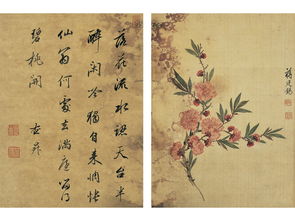 落花流水認天台半
醉閑吟獨自來惆悵
仙翁何處去滿庭
碧桃開
蔣廷錫